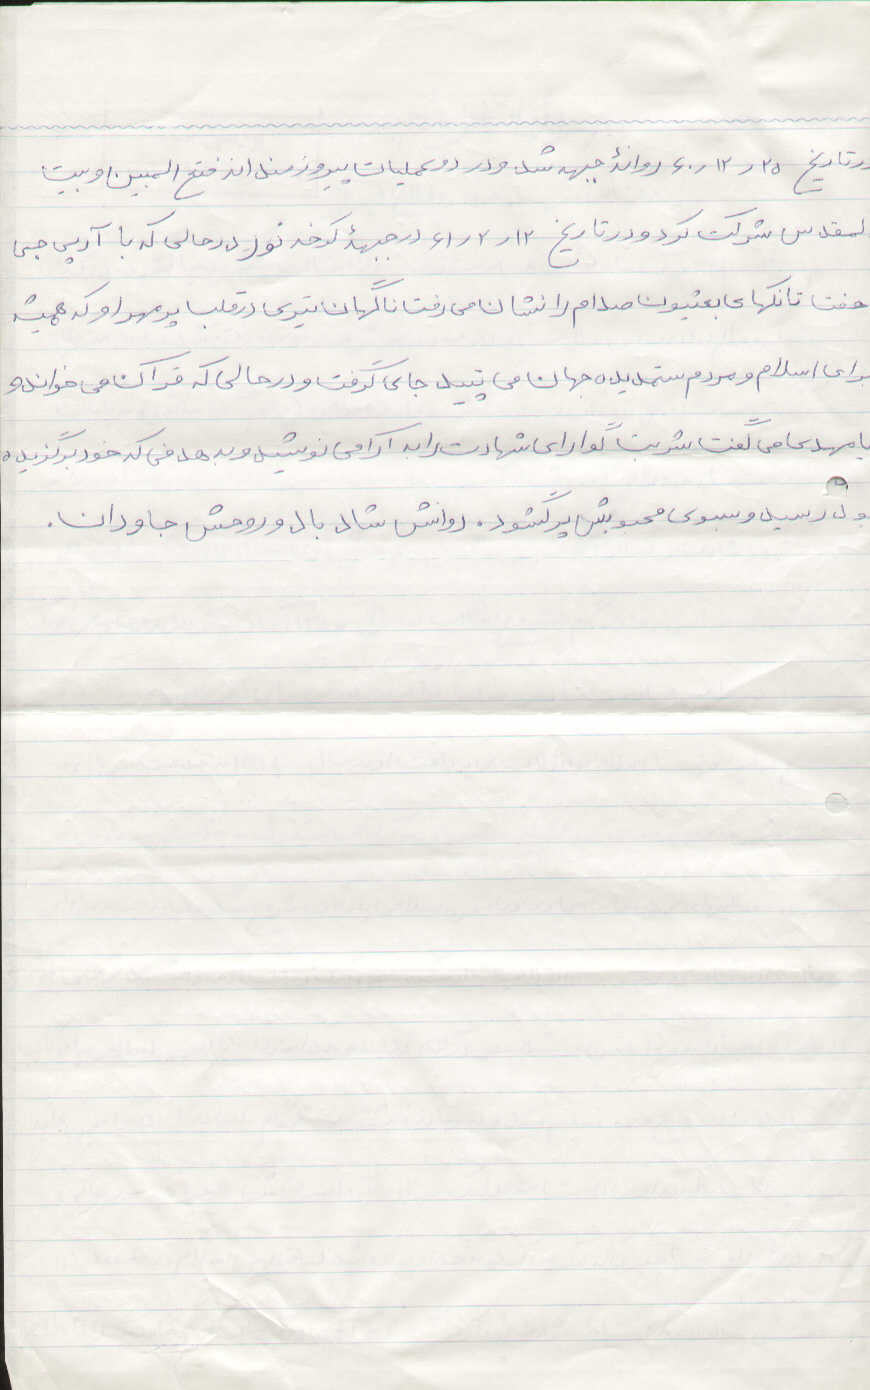 درتاریخ ۲۵ ر ۱۲ ر ۶۰ روانهٔ جبهه شد و در دو عملیات پیروزمندانه فتح المبین و بیت
المقدس شرکت کرد و در تاریخ ۱۲ ر ۲ ر ۶۱ درجبههٔ کرخه نور درحالی که با آرپی جی
هفت تانکهای بعثیون صدام را نشان می رفت ناگهان تیری درقلب پر مهر او که همیشه
برای اسلام و مردم ستمدیده جهان می تپید جای گرفت و درحالی که قرآن می خواند و
یا مهدی می گفت شربت گوارای شهادت را به آرامی نوشید و به هدفی که خود برگزیده
بود رسید و بسوی محبوبش پر گشود. روانش شاد باد و روحش جاودان.